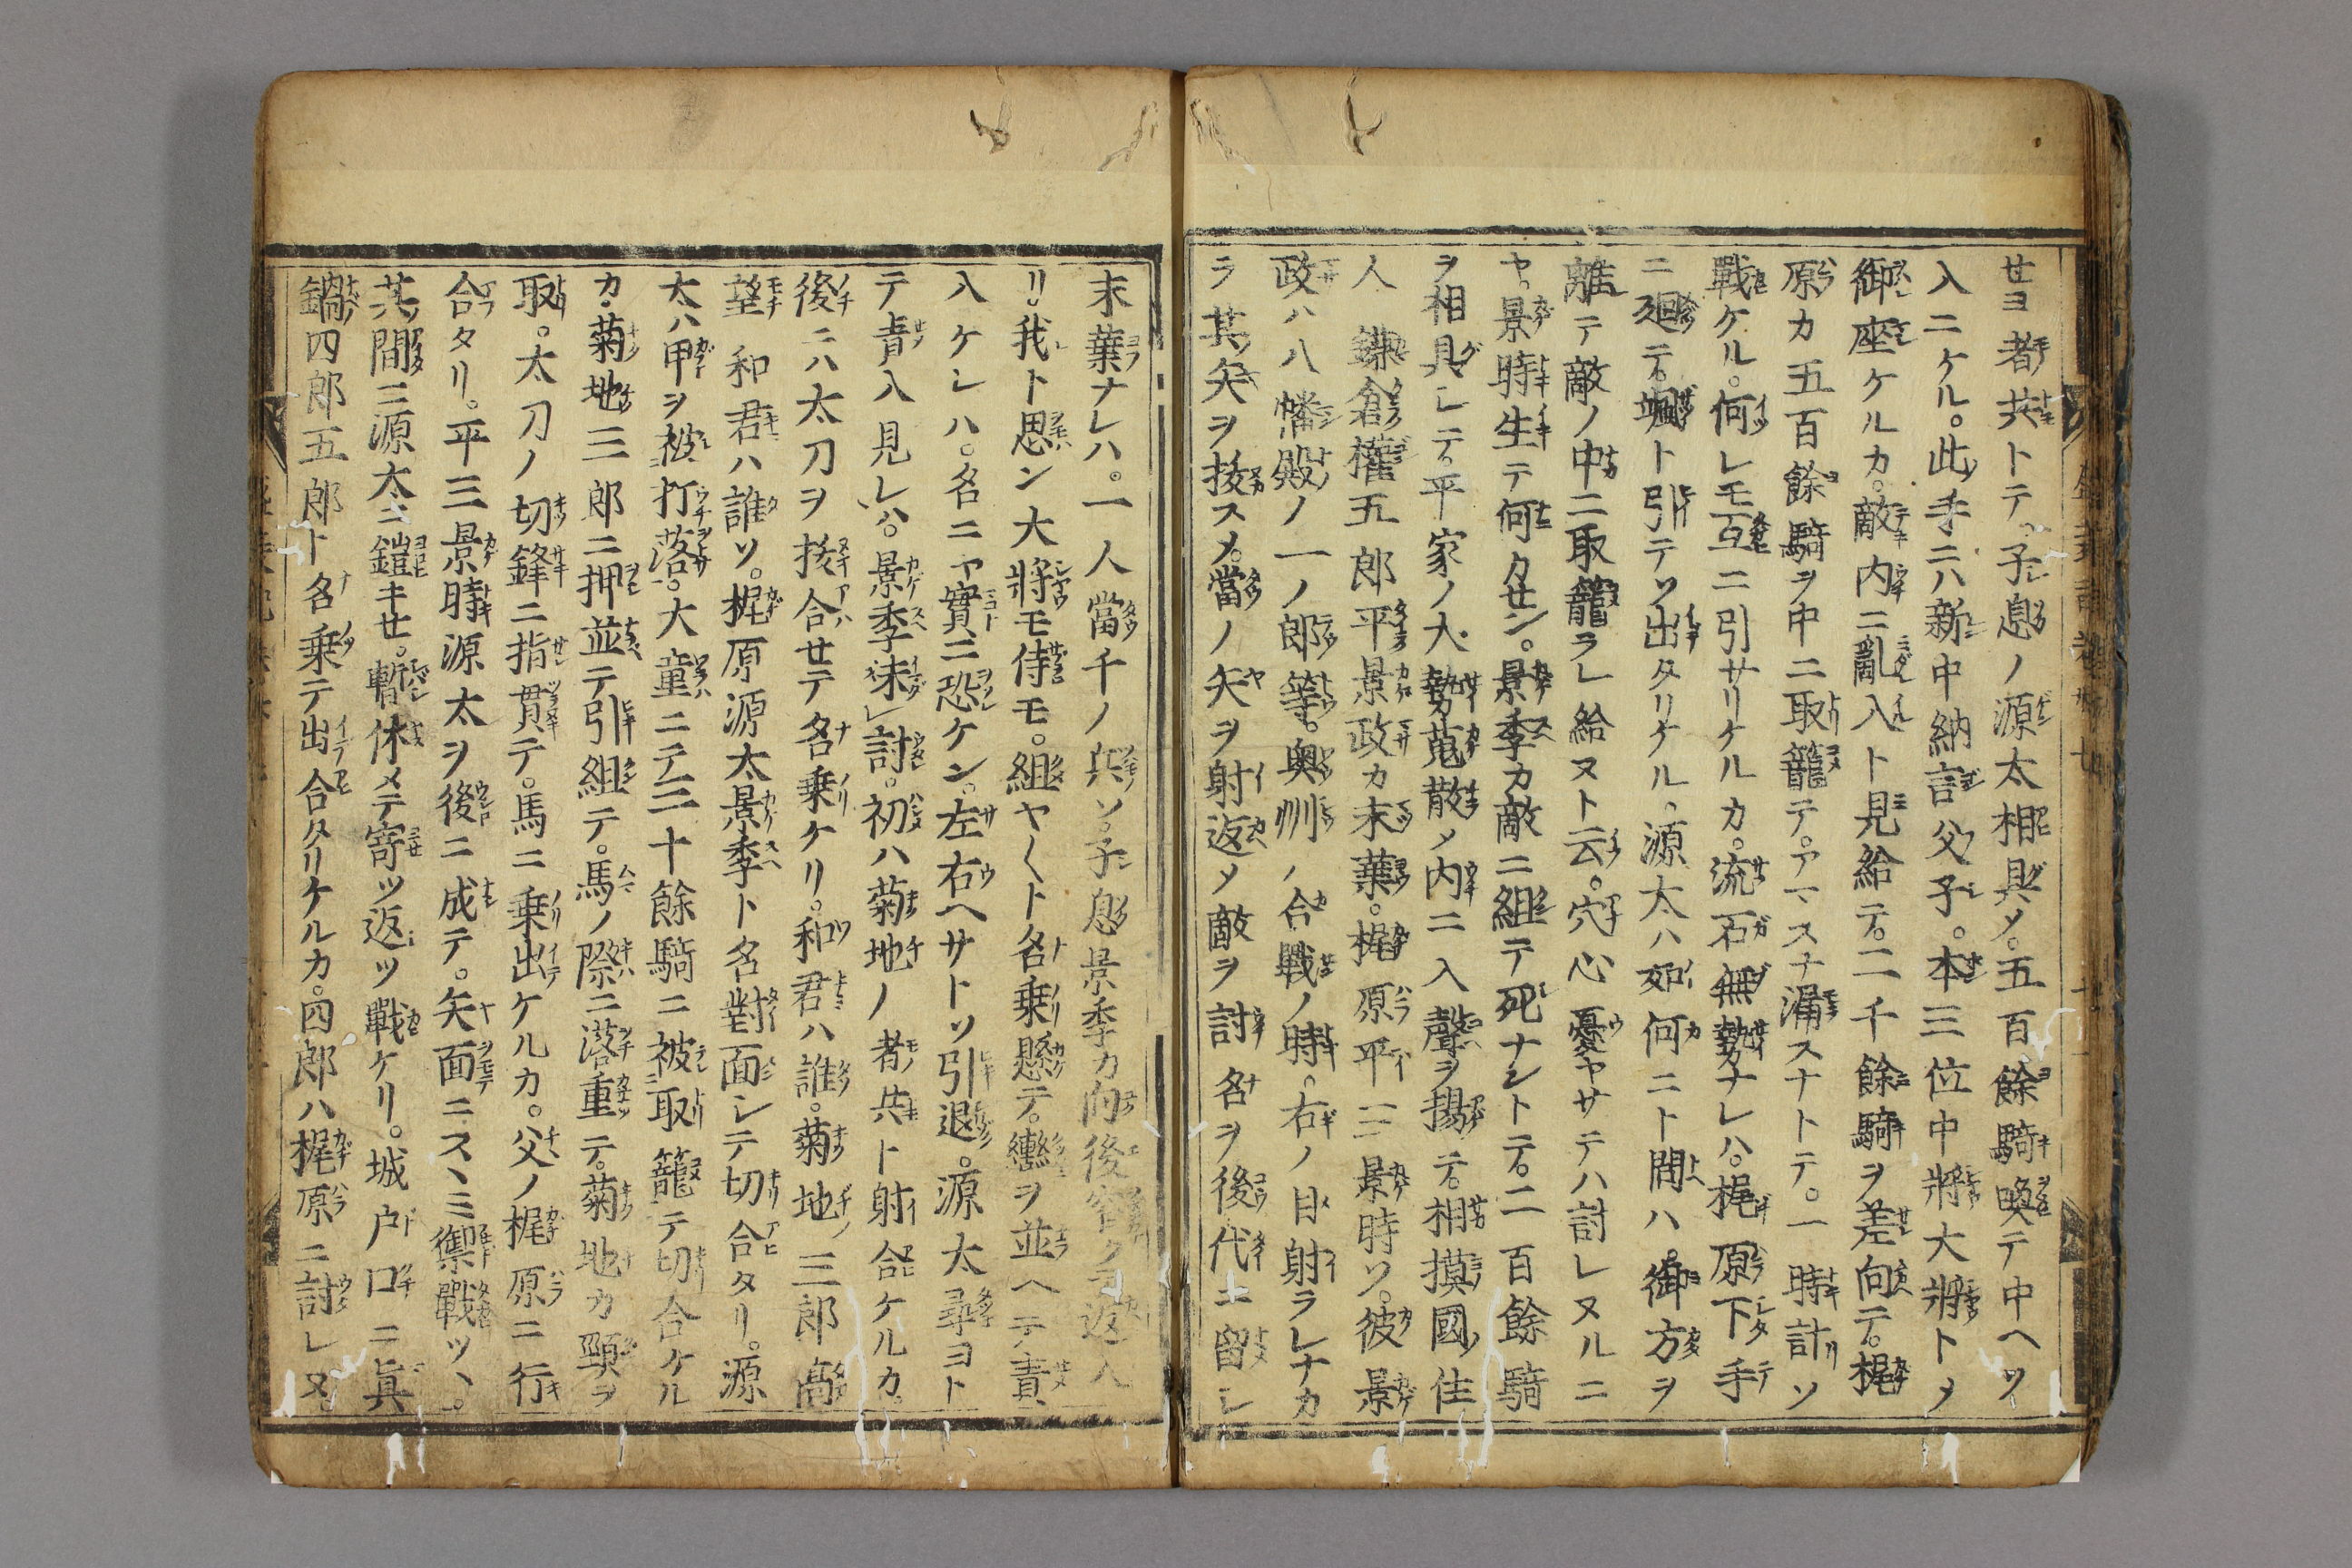 せヨ者共トテ。子息ノ源太相具メ。五百餘騎喚テ中ヘソ
入ニケル。此手ニハ新中納言父子。本三位中將大將トメ
御座ケルカ。敵内ニ亂入ト見給テ。二千餘騎ヲ差向テ。梶
原カ五百餘騎ヲ中ニ取籠テ。アマスナ漏スナトテ。一時計ソ
戰ケル。何レモ互ニ引サリケルカ。流石無勢ナレハ。梶原下手
ニ廻テ。颯ト引テソ出タリケル。源太ハ如何ニト問ハ。御方ヲ
離テ敵ノ中ニ取籠ラレ給ヌト云。穴心憂ヤサテハ討レヌルニ
ヤ。景時生テ何カせン。景季カ敵ニ組テ死ナントテ。二百餘騎
ヲ相具レテ。平家ノ大勢蒐散メ内ニ入聲ヲ揚テ。相摸國住
人 鎌倉權五郎平景政カ末葉。梶原平三景時ソ。彼景
政ハ八幡殿ノ一ノ郎等。奥州ノ合戰ノ時。右ノ目射ラレナカ
ラ其矢ヲ拔スメ。當ノ矢ヲ射返メ敵ヲ討名ヲ後代ニ留レ
末葉ナレハ。一人當千ノ兵ソ。子息景季カ向後返入
リ。我ト思ン大將モ侍モ。組ヤく卜名乗懸テ。轡ヲ並ヘテ責
入ケレハ。名ニヤ實ニ恐ケン。左右ヘサトソ引退。源太尋ヨト
テ責入見レハ。景季未討。初ハ菊地ノ者共ト射合ケルカ。
後ニハ太刀ヲ拔合せテ名乗ケリ。和君ハ誰。菊地三郎高
望 和君ハ誰ソ。梶原源太景季ト名對面レテ切合タリ。源
太ハ甲ヲ被打落。大童ニテ三十餘騎ニ被取籠テ切合ケル
カ。菊地三郎ニ押並テ引組テ。馬ノ際ニ落重テ。菊地カ頸ヲ
取。太刀ノ切鋒ニ指貫テ。馬ニ乗出ケルカ。父ノ梶原ニ行
合タリ。平三景時源太ヲ後ニ成テ。矢面ニスヽミ禦戰ツヽ。
其間ニ源太ニ鎧キせ。暫休メテ寄ツ返ツ戰ケリ。城戸口ニ眞
鍋四郎五郎ト名乗テ出合タリケルカ。四郎ハ梶原ニ討レヌ